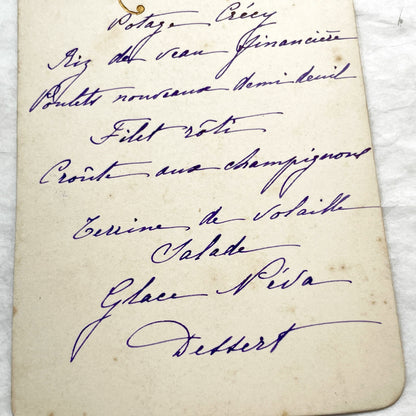 Potage Crécy
Riz de veau financière
Poulets nouveaux demi deuil
Filet rôti
Croûte aux champignons
Terrine de volaille
Salade
Glace Néva
Dessert